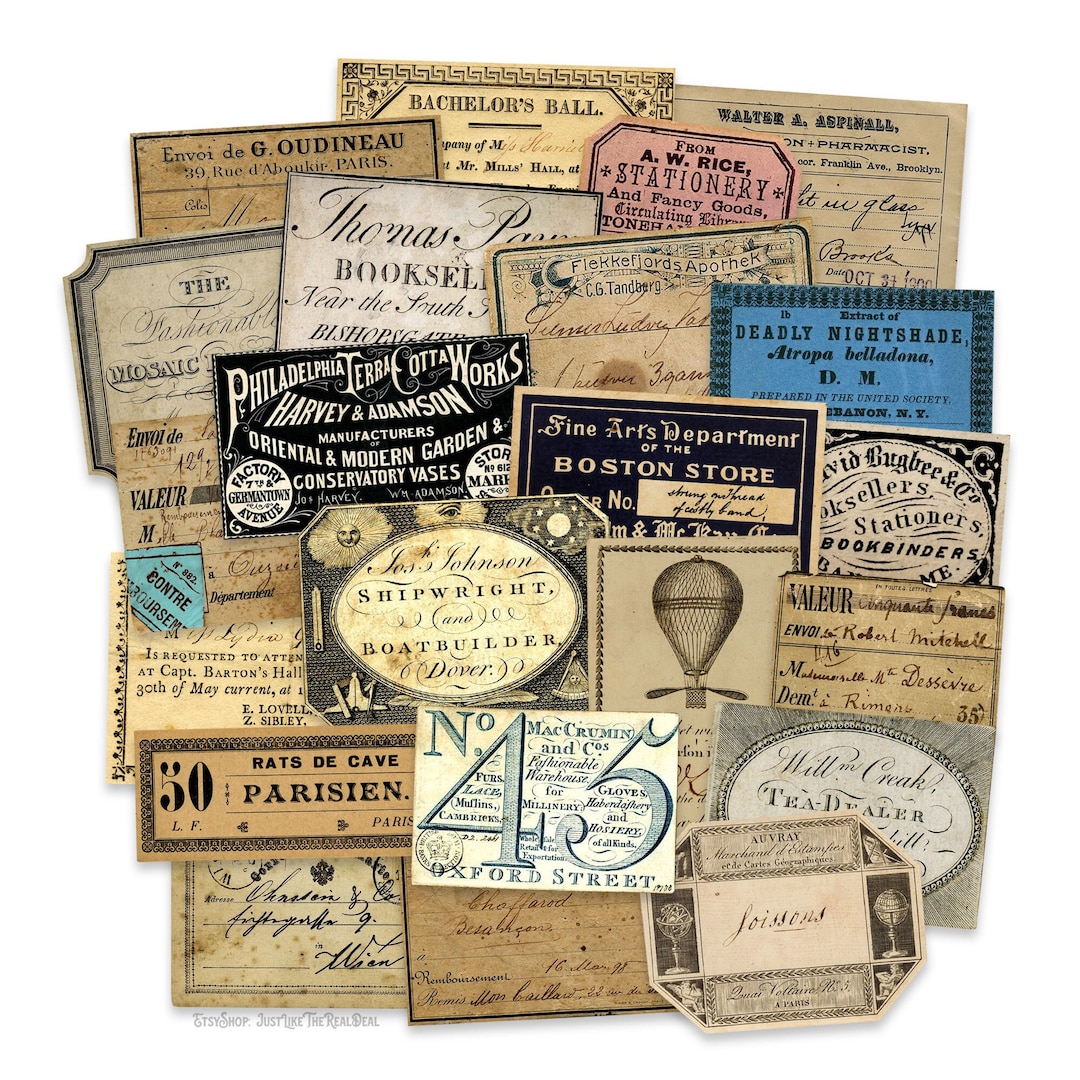 BACHELOR'S BALL.
mpany of Miss Harriet
at Mr. Mills' Hall, at
WALTER A. ASPINALL,
ON + PHARMACIST,
cor. Franklin Ave., Brooklyn.
in glass
Brooks
Date OCT 31
Envoi de G. OUDINEAU
39, Rue d'Aboukir, PARIS.
Colis
FROM
A. W. RICE,
STATIONERY
And Fancy Goods,
Circulating Libra
TONEHA
Thomas Payn
BOOKSELL
Near the South
BISHOPSGATE
Flekkefjords Apothek
C.G. Tandberg
THE
Fashionabl
MOSAIC
lb Extract of
DEADLY NIGHTSHADE,
Atropa belladona,
D. M.
PREPARED IN THE UNITED SOCIETY,
EBANON, N. Y.
PHILADELPHIA TERRA COTTA WORKS
HARVEY & ADAMSON
MANUFACTURERS
OF
ORIENTAL & MODERN GARDEN &
CONSERVATORY VASES
FACTORY
7TH &
GERMANTOWN
AVENUE
STOR
No 612
MARK
JOS HARVEY. WM ADAMSON.
Fine Arts Department
OF THE
BOSTON STORE
ORDER NO. strong on thread
of costly band,
m & McKay Co
vid Bugbee & Co
oksellers,
Stationers,
BOOKBINDERS,
ME.
Envoi de
VALEUR
M.
a
Département
No 862.
CONTRE
REMBOURSEM
M Lydia
IS REQUESTED TO ATTEN
AT Capt. BARTON'S Hall
30th of May current, at
E. LOVELL
Z. SIBLEY,
Jos. Johnson
SHIPWRIGHT,
and
BOATBUILDER,
Dover.
EN TOUTES LETTRES
VALEUR cinquante francs
ENVOI de Robert Mitchell
Mademoiselle Mte Dessèvre
Demt à
35
50
RATS DE CAVE
PARISIEN.
L. F.
PARIS
No. 45
MACCRUMIN
and COs
Fashionable
Warehouse.
for
MILLINERY,
FURS,
LACE,
Muslins,
CAMBRICKS,
GLOVES,
Haberdashery
and
HOSIERY,
of all Kinds.
Wholesale
Retail & for
Exportation
D2. 244
OXFORD STREET
Willm Creak,
TEA-DEALER
hill
Adresse Ohnstein & Co.
Fichtegasse 9.
in
Wien
Chaffarod
Besançon
a
16 Mars 98
Remboursement
Remis Mon Caillard, 22 rue
AUVRAY
Marchand d'Estampes
et de Cartes Géographiques
Soissons
Quai Voltaire No. 5
A PARIS
ETSYSHOP: JUSTLIKETHEREALDEAL